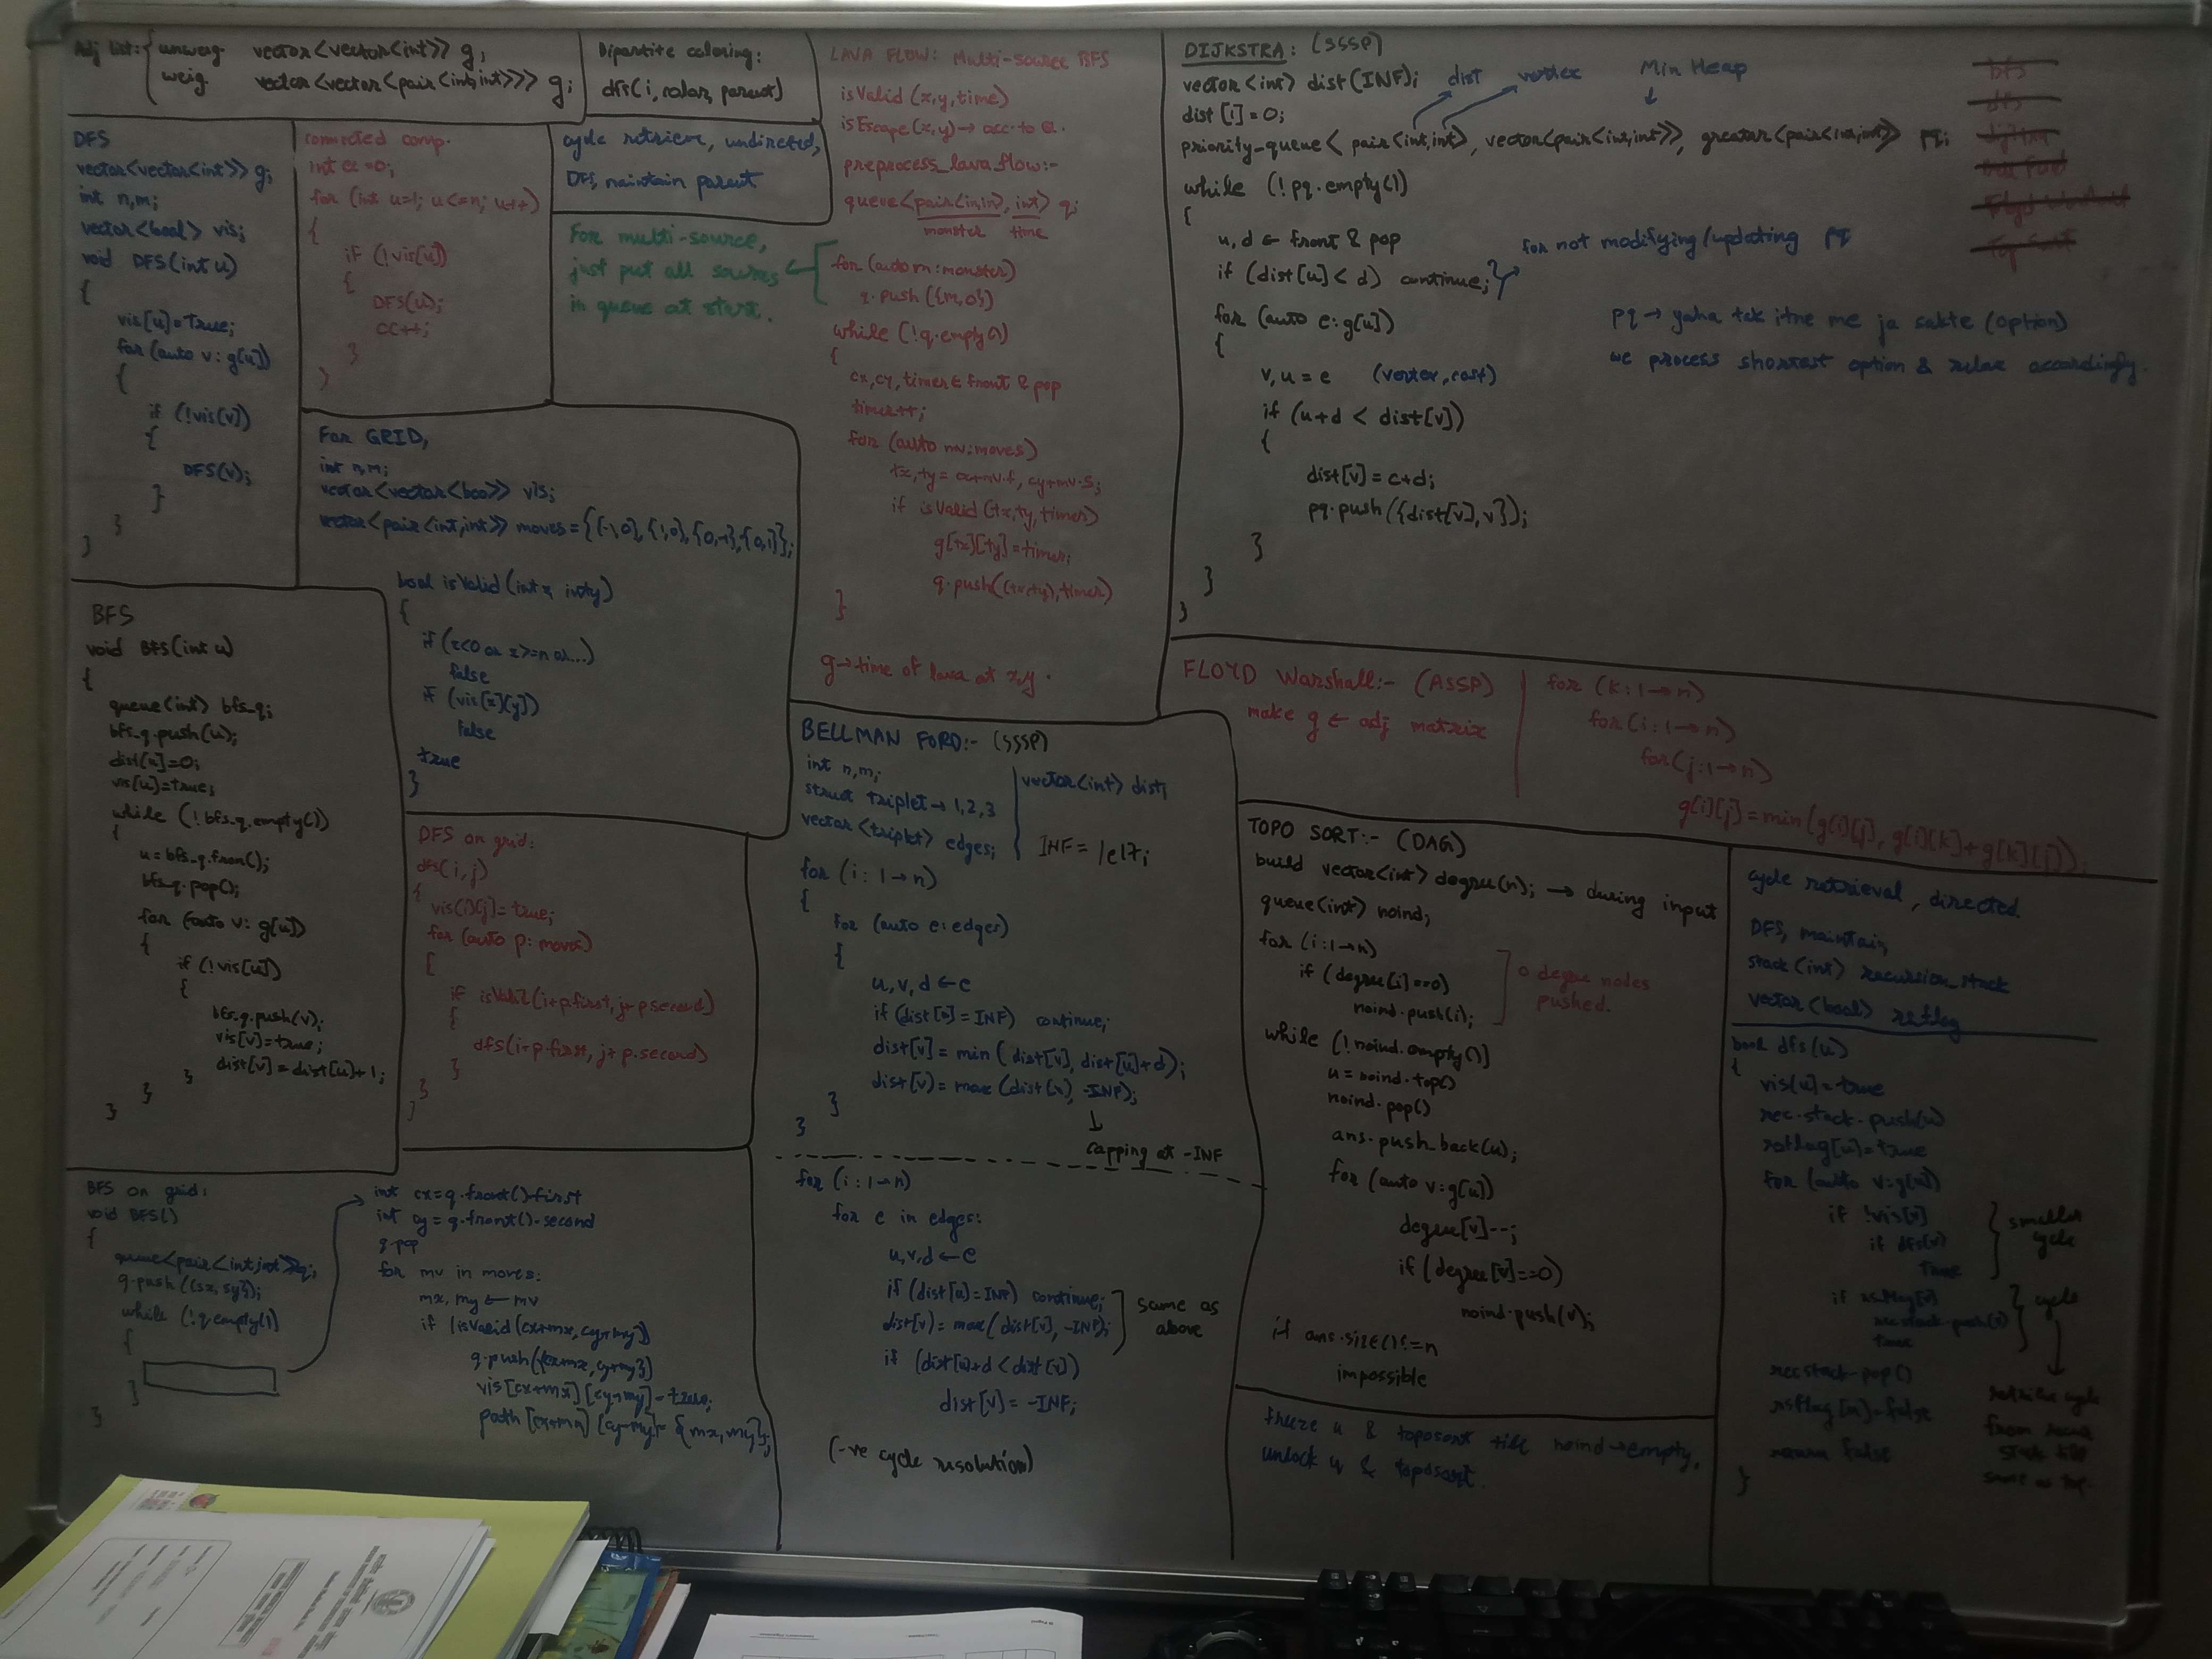 Adj list: { unweig. vector<vector<int>> g;
weig. vector<vector<pair<int,int>>> g;
Bipartite coloring:
dfs(i, color, parent)
DFS
vector<vector<int>> g;
int n,m;
vector<bool> vis;
void DFS(int u)
{
vis[u]=True;
for (auto v: g[u])
{
if (!vis[v])
{
DFS(v);
}
}
}
connected comp.
int cc=0;
for (int u=1; u<=n; u++)
{
if (!vis[u])
{
DFS(u);
cc++;
}
}
cycle retrieve, undirected,
DFS, maintain parent
For multi-source,
just put all sources
in queue at start.
For GRID,
int n,m;
vector<vector<bool>> vis;
vector<pair<int,int>> moves={{-1,0},{1,0},{0,-1},{0,1}};
bool isValid(int x, int y)
{
if (x<0 or x>=n or...)
false
if (vis[x][y])
false
true
}
BFS
void BFS(int u)
{
queue<int> bfs_q;
bfs_q.push(u);
dist[u]=0;
vis[u]=true;
while (!bfs_q.empty())
{
u=bfs_q.front();
bfs_q.pop();
for (auto v: g[u])
{
if (!vis[u])
{
bfs_q.push(v);
vis[v]=true;
dist[v]=dist[u]+1;
}
}
}
DFS on grid:
dfs(i,j)
{
vis[i][j]=true;
for (auto p: moves)
{
if isValid(i+p.first, j+p.second)
{
dfs(i+p.first, j+p.second)
}
}
}
BFS on grid:
void BFS()
{
queue<pair<int,int>>q;
q.push({sx,sy});
while (!q.empty())
{
}
}
int cx=q.front().first
int cy=q.front().second
q.pop
for mv in moves:
mx, my ← mv
if (isValid(cx+mx, cy+my))
q.push({cx+mx, cy+my})
vis[cx+mx][cy+my]=true;
path[cx+mx][cy+my]={mx,my};
LAVA FLOW: Multi-source BFS
isValid(x,y,time)
isEscape(x,y)→ acc. to Q.
preprocess_lava_flow:-
queue<pair<int,int>, int> q;
monster time
for (auto m: monster)
q.push({m,0})
while (!q.empty())
{
cx,cy,timer ← front & pop
timer++;
for (auto mv: moves)
tx,ty = cx+mv.f, cy+mv.s;
if isValid(tx,ty,timer)
g[tx][ty]=timer;
q.push((tx,ty),timer)
}
g→time of lava at x,y.
BELLMAN FORD:- (SSSP)
int n,m;
struct triplet → 1,2,3
vector<triplet> edges;
vector<int> dist;
INF = 1e17;
for (i: 1→n)
{
for (auto e: edges)
{
u,v,d ← e
if (dist[u]=INF) continue;
dist[v]=min(dist[v], dist[u]+d);
dist[v]=max(dist[v], -INF);
}
}
↓
capping at -INF
for (i: 1→n)
for e in edges:
u,v,d ← e
if (dist[u]=INF) continue;
dist[v]=max(dist[v],-INF);
same as
above
if (dist[u]+d < dist[v])
dist[v]=-INF;
(-ve cycle resolution)
DIJKSTRA: (SSSP)
vector<int> dist(INF);
dist vertex Min Heap
dist[i]=0;
priority_queue< pair<int,int>, vector<pair<int,int>>, greater<pair<int,int>> pq;
while (!pq.empty())
{
u,d ← front & pop
if (dist[u]<d) continue;
for not modifying/updating pq
for (auto e: g[u])
{
v,u=e (vertex, cost)
if (u+d < dist[v])
{
dist[v]=c+d;
pq.push({dist[v],v});
}
}
}
pq → yaha tak itne me ja sakte (option)
we process shortest option & relax accordingly.
bfs
dfs
FLOYD Warshall:- (ASSP)
make g ← adj matrix
for (k: 1→n)
for (i: 1→n)
for (j: 1→n)
g[i][j]=min(g[i][j], g[i][k]+g[k][j]);
TOPO SORT:- (DAG)
build vector<int> degree(n); → during input
queue<int> noind;
for (i: 1→n)
if (degree[i]==0)
noind.push(i);
0 degree nodes
pushed.
while (!noind.empty())
u=noind.top()
noind.pop()
ans.push_back(u);
for (auto v: g[u])
degree[v]--;
if (degree[v]==0)
noind.push(v);
if ans.size()!=n
impossible
freeze u & toposort till noind→empty,
unlock u & toposort.
cycle retrieval, directed
DFS, maintain,
stack<int> recursion_stack
vector<bool> rstflag
bool dfs(u)
{
vis[u]=true
rec.stack.push(u)
rstflag[u]=true
for (auto v: g[u])
if !vis[v]
if dfs(v)
True
smaller
cycle
true
cycle
↓
retrieve cycle
recstack.pop()
rsflag[u]=false
return false
}